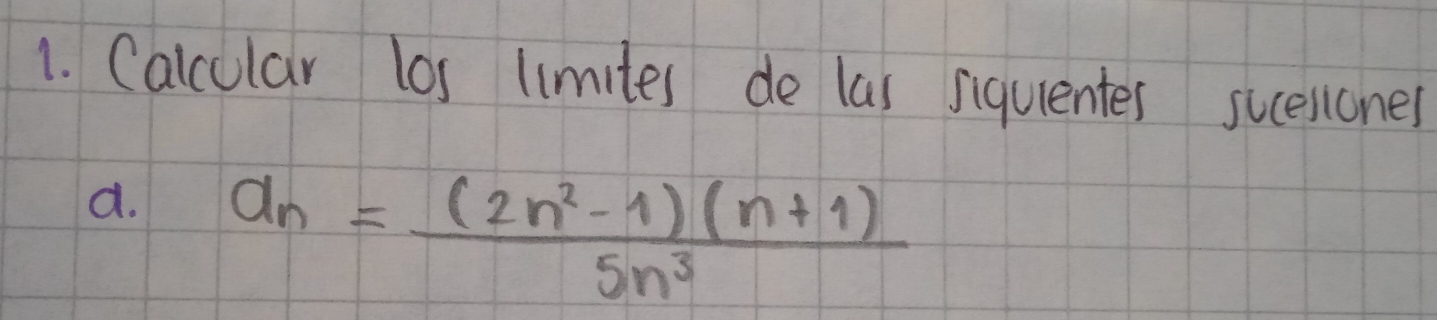 1. Calcular los limites de las siguientes sucesiones
a. an = (2n² - 1)(n + 1)
5n³